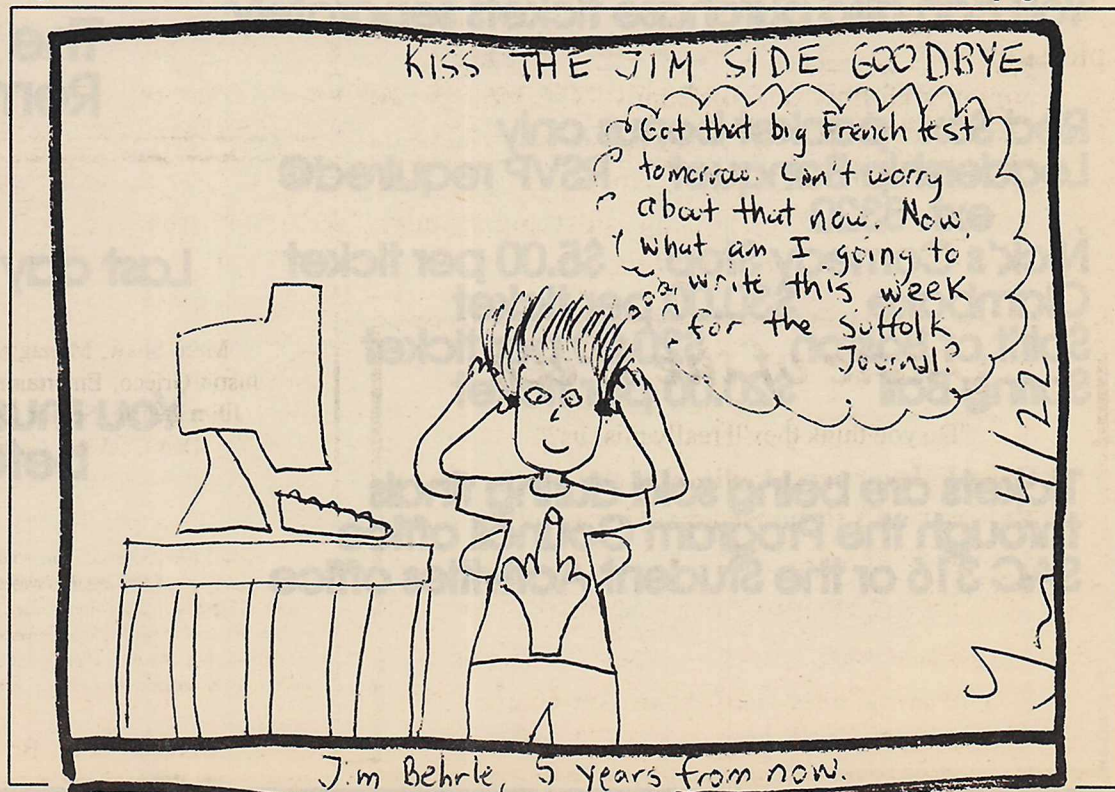 KISS THE JIM SIDE GOODBYE
Got that big French test
tomorrow. Can't worry
about that now. Now,
what am I going to
write this week
for the Suffolk
Journal?
4/22
Jim
Jim Behrle, 5 years from now.